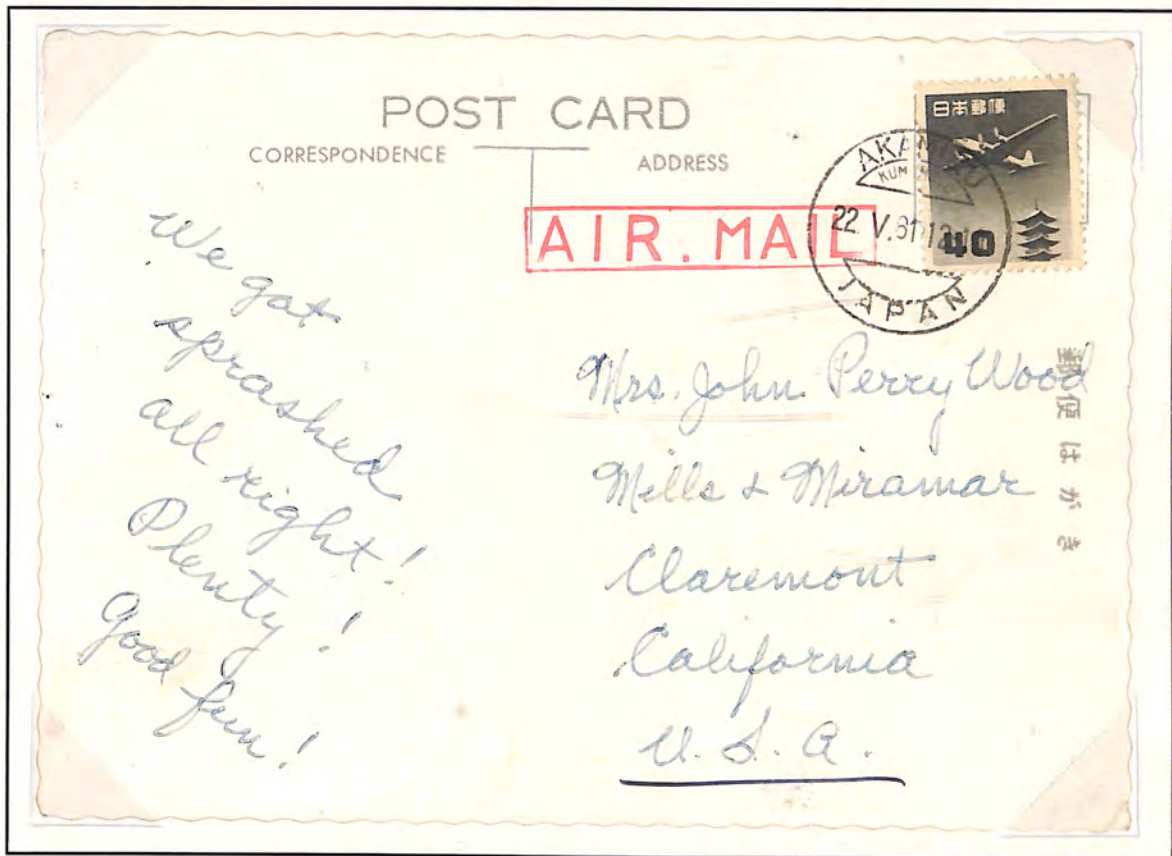 POST CARD
CORRESPONDENCE
ADDRESS
AIR.MAIL
日本郵便
40
22 V.61
JAPAN
We got
sprashed
all right!
Plenty!
Good fun!
Mrs. John Perry Wood
Mills & Miramar
Claremont
California
U.S.A.
郵便はがき